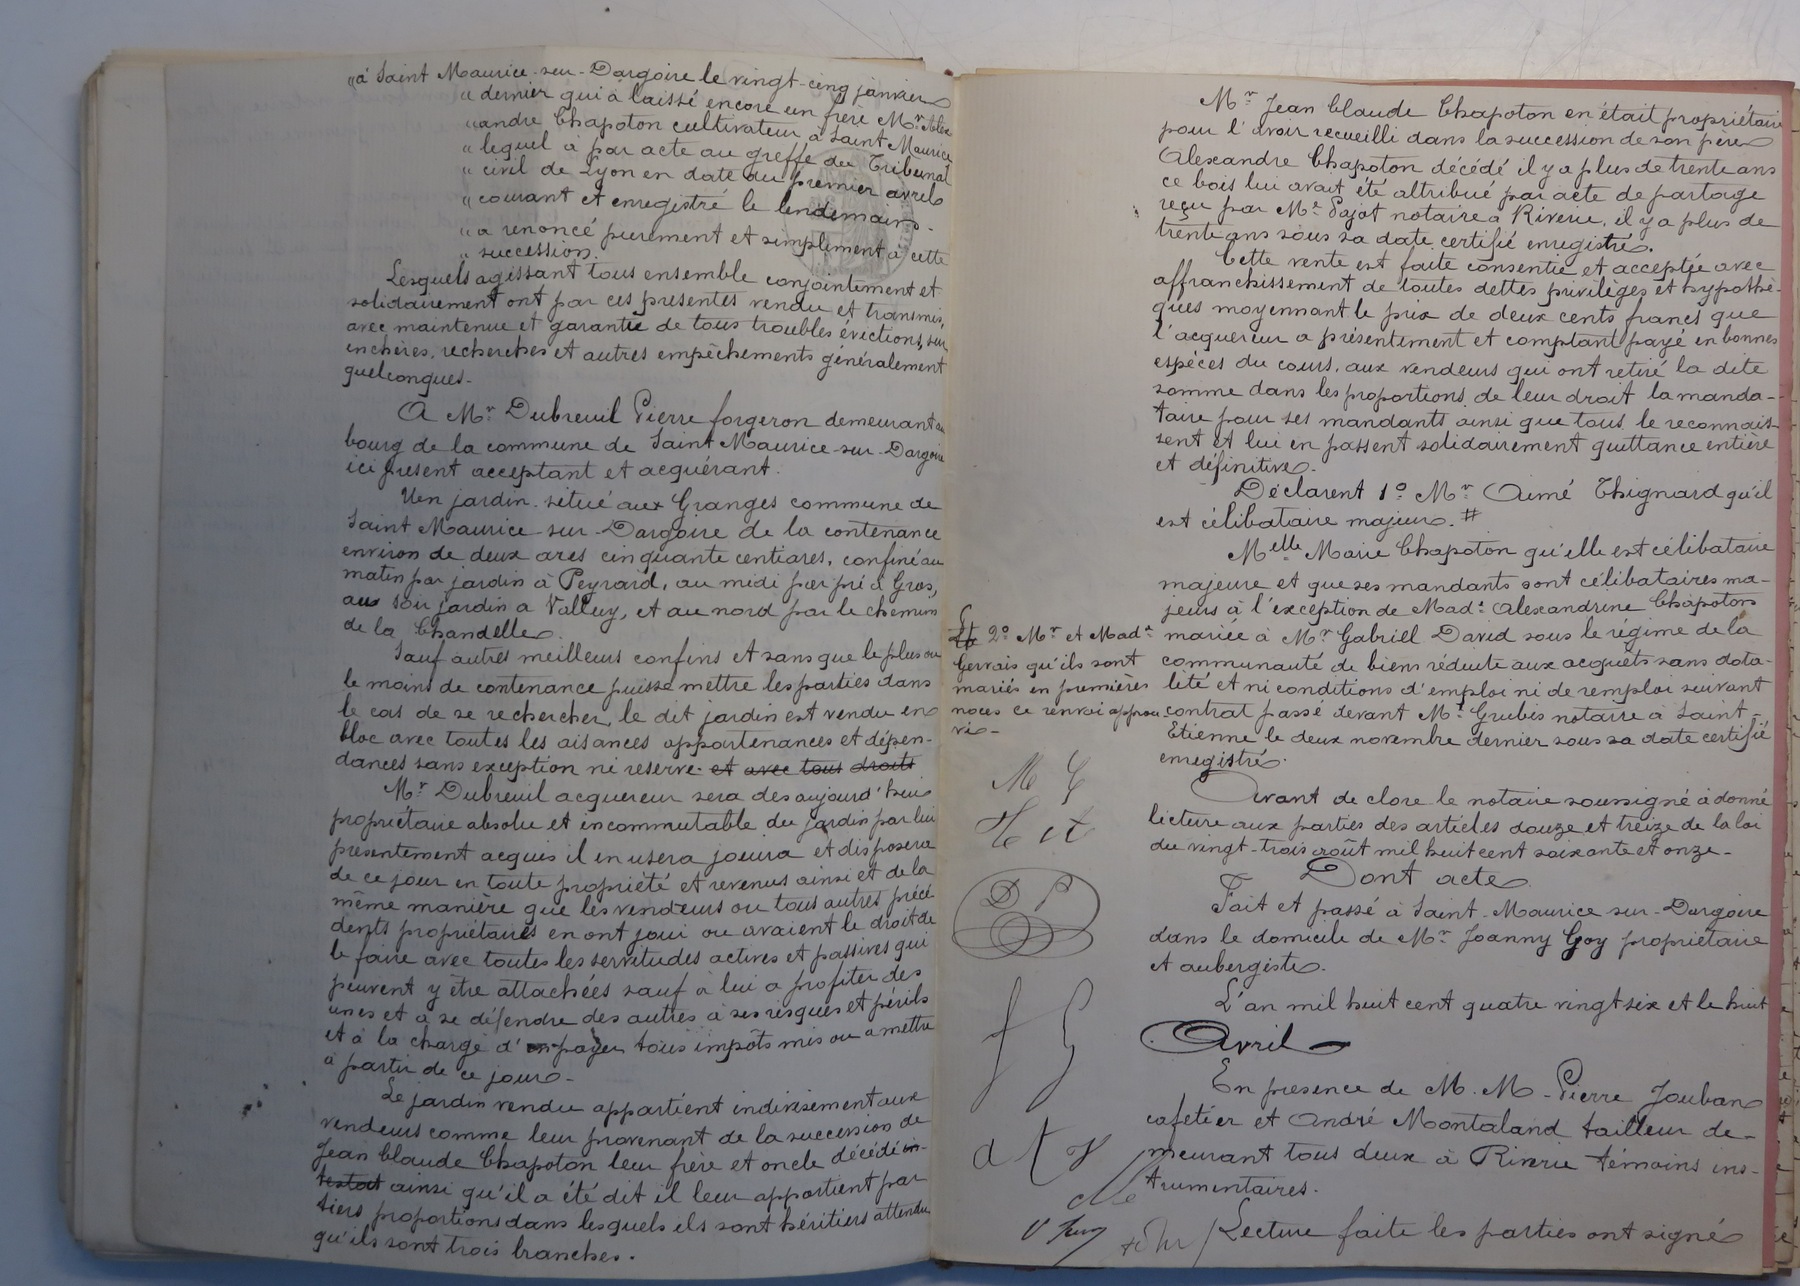 "à Saint Maurice-sur-Dargoire le vingt-cinq janvier
"dernier qui à laissé encore un frère Mr Alex
"andre Chapoton cultivateur à Saint Maurice
"lequel à par acte au greffe du Tribunal
"civil de Lyon en date du premier avril
"courant et enregistré le lendemain -
"a renoncé purement et simplement à cette
"succession.
Lesquels agissant tous ensemble conjointement et
solidairement ont par ces présentes vendu et transmis,
avec maintenue et garantie de tous troubles évictions, sur
enchères, recherches et autres empêchements généralement
quelconques.
A Mr Dubreuil Pierre forgeron demeurant au
bourg de la commune de Saint Maurice-sur-Dargoire
ici présent acceptant et acquérant.
Un jardin situé aux Granges commune de
Saint Maurice-sur-Dargoire de la contenance
environ de deux ares cinquante centiares, confiné au
matin par jardin à Peyrard, au midi par pré à Gros,
au soir jardin a Valluy, et au nord par le chemin
de la Chandelle.
Sauf autres meilleurs confins et sans que le plus ou
le moins de contenance puisse mettre les parties dans
le cas de se rechercher, le dit jardin est vendu en
bloc avec toutes les aisances appartenances et dépen-
dances sans exception ni réserve et avec tous droits
Mr Dubreuil acquereur sera dès aujourd'hui
propriétaire absolu et incommutable du jardin par lui
présentement acquis il en usera jouira et disposera
de ce jour en toute propriété et revenus ainsi et de la
même manière que les vendeurs ou tous autres précé
dents propriétaires en ont joui ou avaient le droit de
le faire avec toutes les servitudes actives et passives qui
peuvent y être attachées sauf à lui a profiter des
unes et à se défendre des autres à ses risques et périls
et à la charge d'en payer tous impôts mis ou a mettre
à partir de ce jour -
Le jardin vendu appartient indivisément aux
vendeurs comme leur provenant de la succession de
Jean Claude Chapoton leur frère et oncle décédé in-
testat ainsi qu'il a été dit il leur appartient par
tiers proportions dans lesquels ils sont héritiers attendu
qu'ils sont trois branches.
Mr Jean Claude Chapoton en était propriétaire
pour l'avoir recueilli dans la succession de son père
Alexandre Chapoton décédé il y a plus de trente ans
ce bois lui avait été attribué par acte de partage
reçu par Me Pajot notaire à Riverie, il y a plus de
trente ans sous sa date certifié enregistré.
Cette vente est faite consentie et acceptée avec
affranchissement de toutes dettes privilèges et hypothè-
ques moyennant le prix de deux cents francs que
l'acquereur a présentement et comptant payé en bonnes
espèces du cours, aux vendeurs qui ont retiré la dite
somme dans les proportions de leur droit la manda-
taire pour ses mandants ainsi que tous le reconnais-
sent et lui en passent solidairement quittance entière
et définitive.
Déclarent 1° Mr Aimé Thignard qu'il
est célibataire majeur. #
Melle Marie Chapoton qu'elle est célibataire
majeure et que ses mandants sont célibataires ma-
jeurs à l'exception de Made Alexandrine Chapoton
mariée à Mr Gabriel David sous le régime de la
communauté de biens réduite aux acquêts sans dota-
lité et ni conditions d'emploi ni de remploi suivant
contrat passé devant Me Grubis notaire à Saint-
Etienne le deux novembre dernier sous sa date certifié
enregistré.
2° Mr et Made
Gervais qu'ils sont
mariés en premières
noces ce renvoi approu-
vé -
M G
D P
Avant de clore le notaire soussigné à donné
lecture aux parties des articles douze et treize de la loi
du vingt-trois août mil huit cent soixante et onze -
Dont acte
Fait et passé à Saint-Maurice-sur-Dargoire
dans le domicile de Mr Joanny Goy propriétaire
et aubergiste.
L'an mil huit cent quatre vingt six et le huit
Avril
En présence de M. M - Pierre Jouban
cafetier et André Montaland tailleur de-
meurant tous deux à Riverie témoins ins-
trumentaires.
Lecture faite les parties ont signé